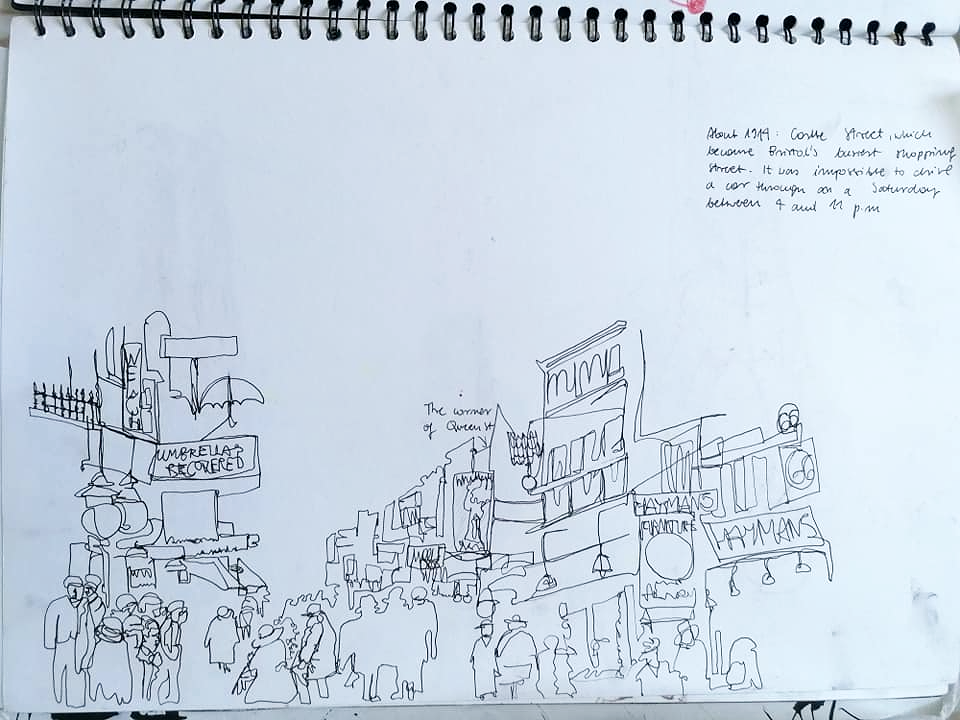 About 1919: Castle Street, which
became Bristol's busiest shopping
street. It was impossible to drive
a car through on a Saturday
between 4 and 11 p.m
The corner
of Queen St
UMBRELLAS
RECOVERED
HAYMANS
FURNITURE
HAYMANS